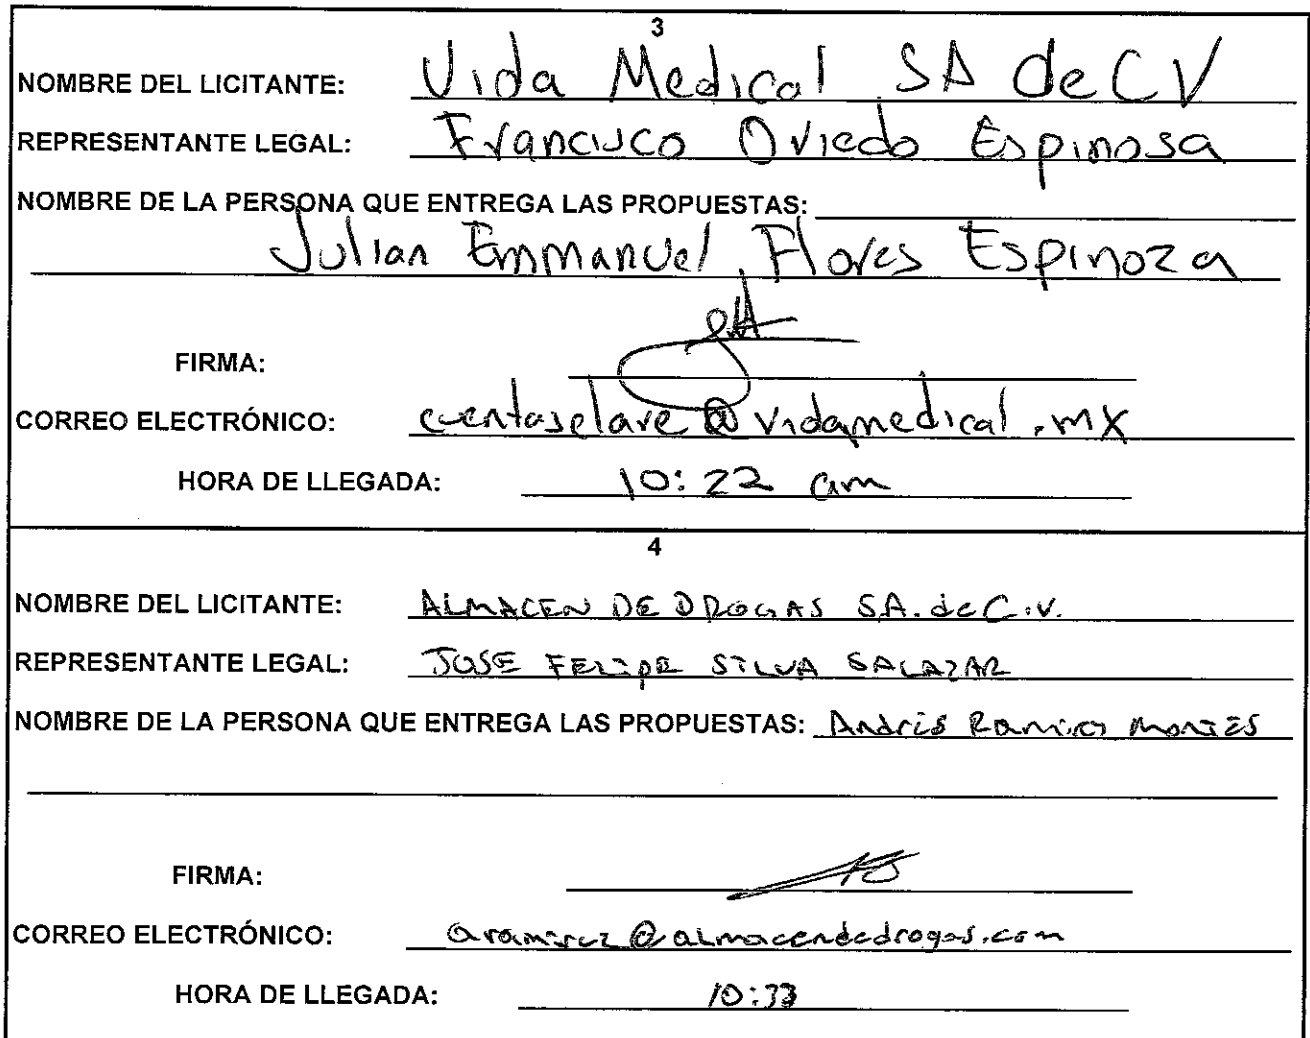 3
NOMBRE DEL LICITANTE: Vida Medical SA de CV
REPRESENTANTE LEGAL: Francisco Oviedo Espinosa
NOMBRE DE LA PERSONA QUE ENTREGA LAS PROPUESTAS:
Julian Emmanuel Flores Espinoza
FIRMA:
CORREO ELECTRÓNICO: cuentasclave@vidamedical.mx
HORA DE LLEGADA: 10:22 am
4
NOMBRE DEL LICITANTE: ALMACEN DE DROGAS S.A. de C.V.
REPRESENTANTE LEGAL: JOSE FELIPE SILVA SALAZAR
NOMBRE DE LA PERSONA QUE ENTREGA LAS PROPUESTAS: Andrés
FIRMA:
CORREO ELECTRÓNICO: aramirez@almacendedrogas.com
HORA DE LLEGADA: 10:33